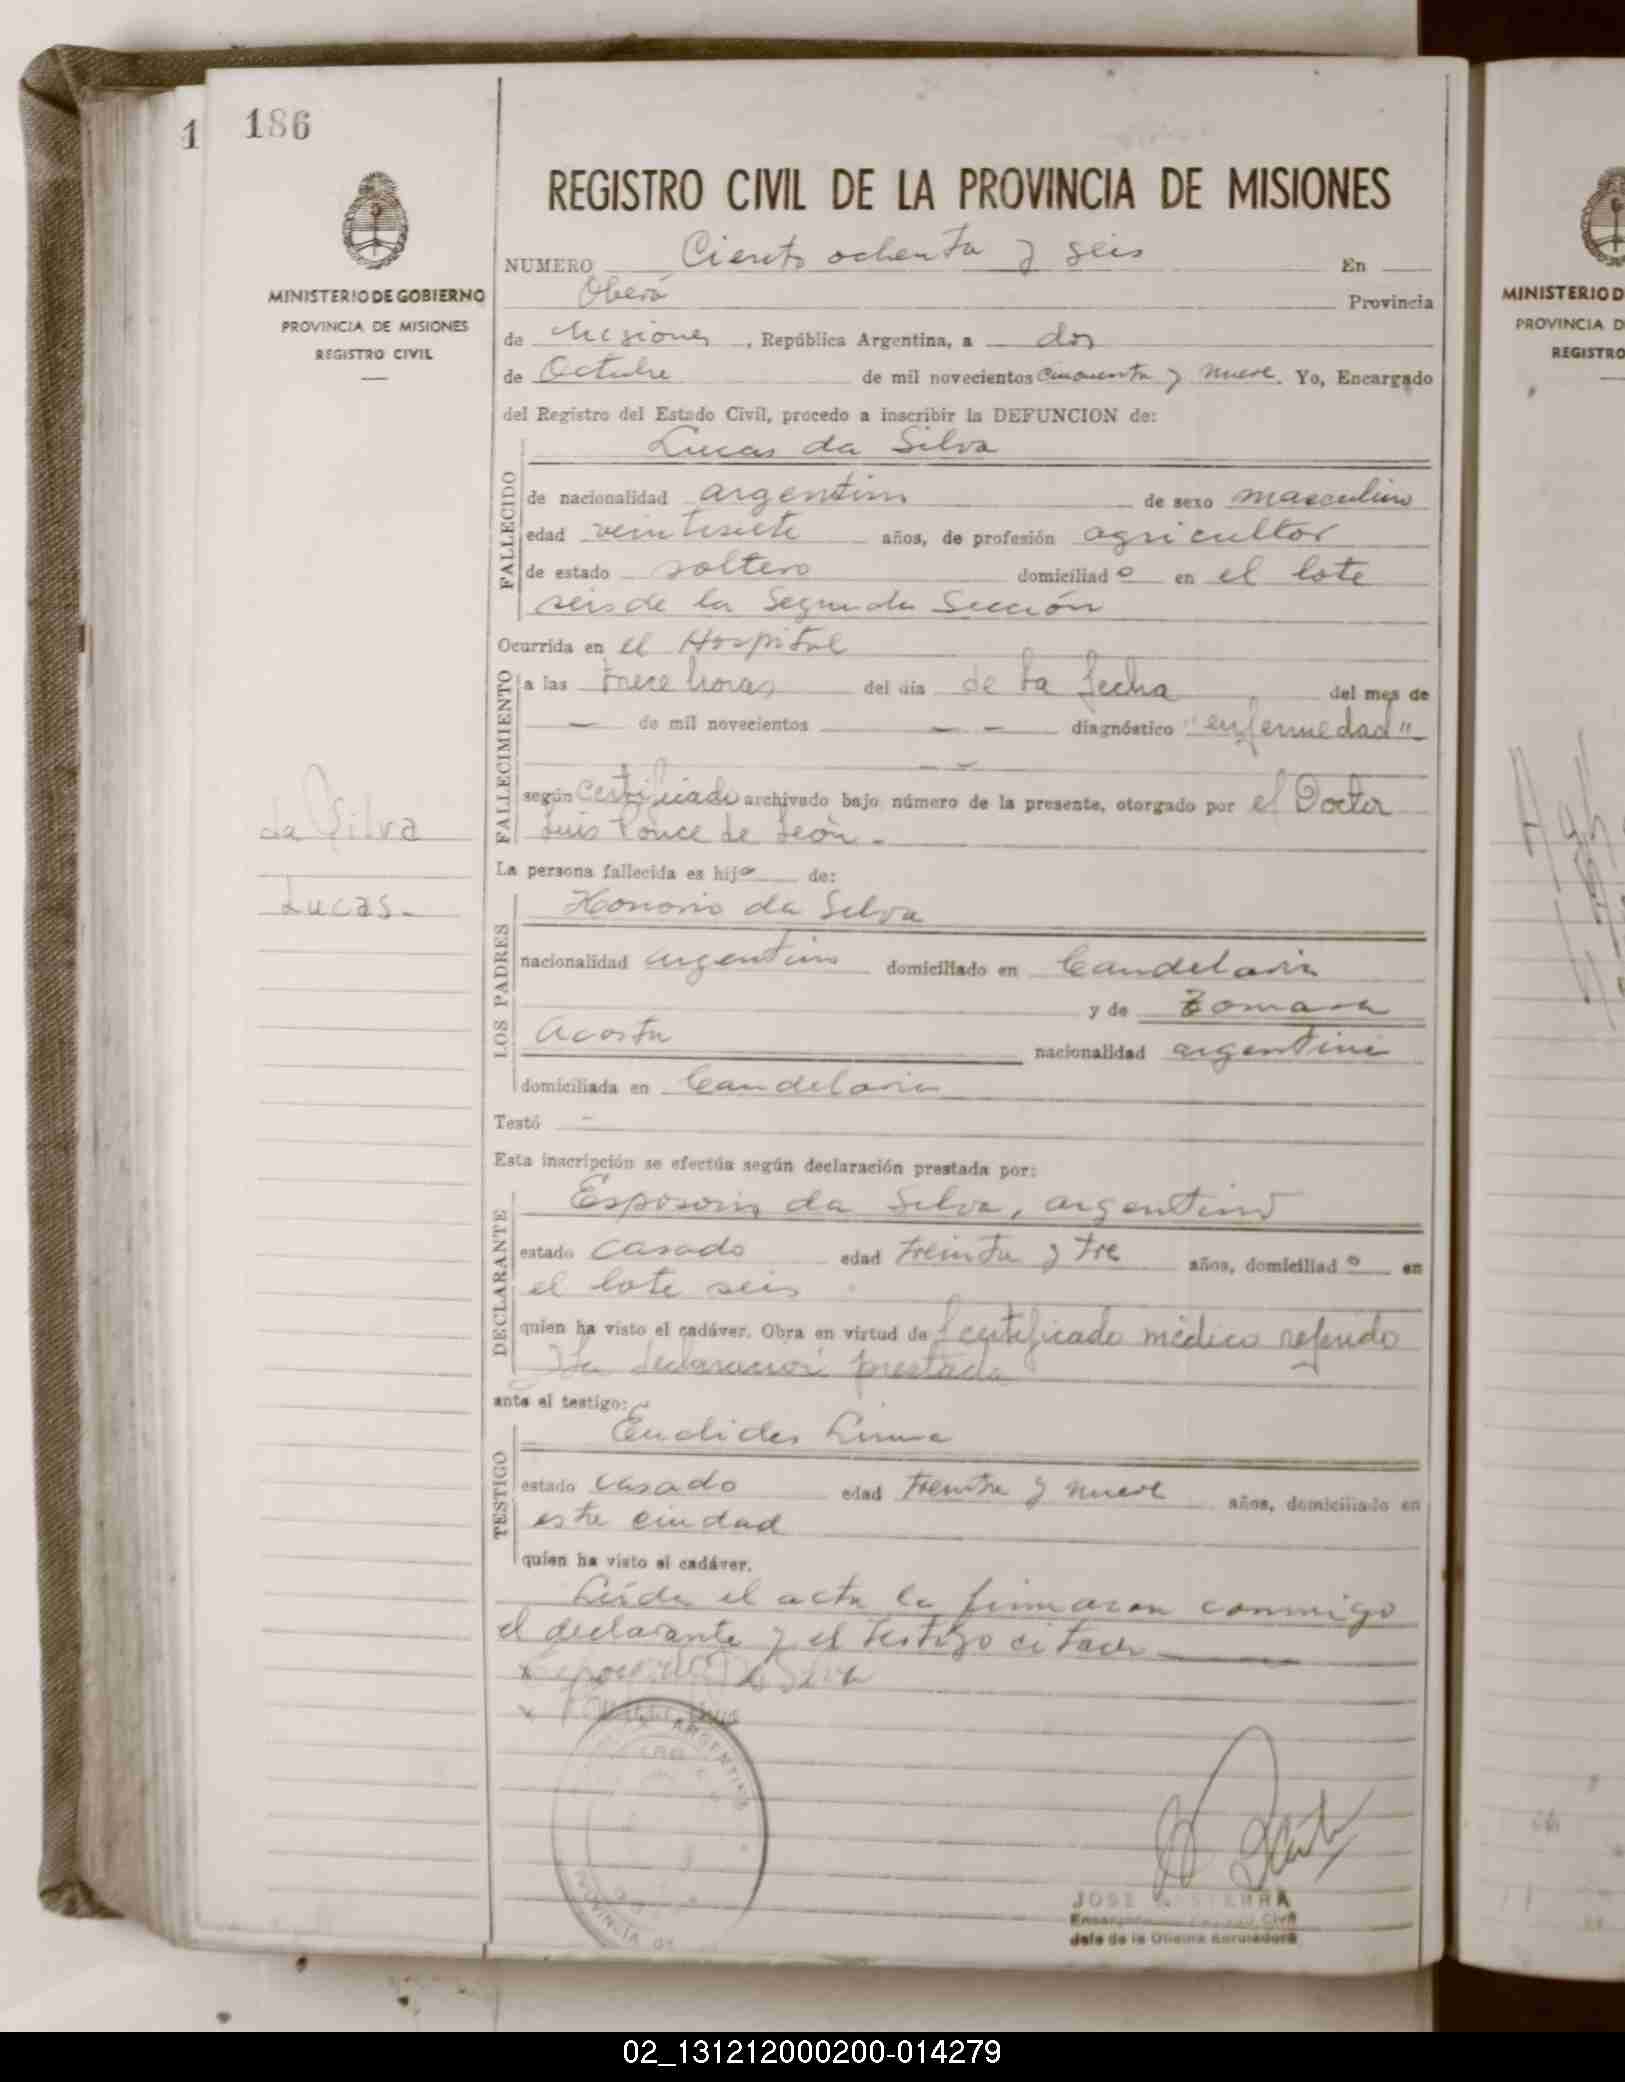 1 186
REGISTRO CIVIL DE LA PROVINCIA DE MISIONES
MINISTERIO DE GOBIERNO
PROVINCIA DE MISIONES
REGISTRO CIVIL
NUMERO Ciento ochenta y seis En
Oberá Provincia
de Misiones, República Argentina, a dos
de Octubre de mil novecientos cincuenta y nueve. Yo, Encargado
del Registro del Estado Civil, procedo a inscribir la DEFUNCION de:
FALLECIDO
Lucas da Silva
de nacionalidad argentino de sexo masculino
edad veintisiete años, de profesión agricultor
de estado soltero domiciliado en el lote
seis de la Segunda Sección
Ocurrida en el Hospital
FALLECIMIENTO
a las trece horas del día de la fecha del mes de
— de mil novecientos — — diagnóstico "enfermedad"
— —
según certificado archivado bajo número de la presente, otorgado por el Doctor
Luis Ponce de León.-
da Silva
Lucas.-
La persona fallecida es hijo de:
LOS PADRES
Honorio da Silva
nacionalidad argentino domiciliado en Candelaria
y de Tomasa
Acosta nacionalidad argentina
domiciliada en Candelaria
Testó -
Esta inscripción se efectúa según declaración prestada por:
DECLARANTE
da Silva, argentino
estado casado edad treinta y tre años, domiciliado en
el lote seis
quien ha visto el cadáver. Obra en virtud de certificado médico referido
y la declaración prestada
ante el testigo:
TESTIGO
Euclides Lima
estado casado edad treinta y nueve años, domiciliado en
esta ciudad
quien ha visto el cadáver.
Leída el acta la firmaron conmigo
el declarante y el testigo citado
x
x
ARGENTINA
PROVINCIA DE
JOSE SIERRA
Jefe de la Oficina
MINISTERIO D
PROVINCIA D
REGISTRO
02_131212000200-014279